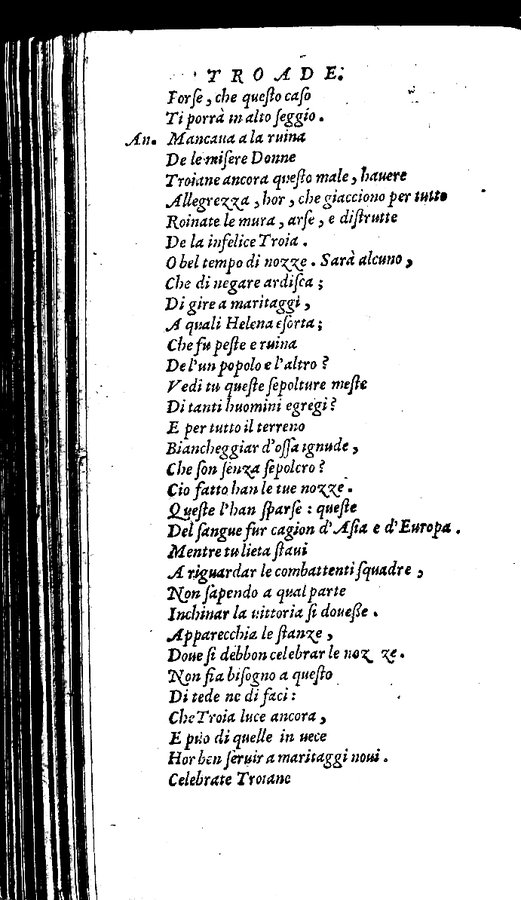 TROADE.
Forſe, che queſto caſo
Ti porrà in alto ſeggio.
An. Mancaua a la ruina
De le miſere Donne
Troiane ancora queſto male, hauere
Allegrezza, hor, che giacciono per tutto
Roinate le mura, arſe, e diſtrutte
De la infelice Troia.
O bel tempo di nozze. Sarà alcuno,
Che di negare ardiſca;
Di gire a maritaggi,
A quali Helena eſorta;
Che fu peſte e ruina
De l'un popolo e l'altro?
Vedi tu queſte ſepolture meſte
Di tanti huomini egregi?
E per tutto il terreno
Biancheggiar d'oſſa ignude,
Che ſon ſenza ſepolcro?
Cio fatto han le tue nozze.
Queſte l'han ſparſe: queſte
Del ſangue fur cagion d'Aſia e d'Europa.
Mentre tu lieta ſtaui
A riguardar le combattenti ſquadre,
Non ſapendo a qual parte
Inchinar la uittoria ſi doueße.
Apparecchia le ſtanze,
Doue ſi debbon celebrar le noz ze.
Non fia biſogno a queſto
Di tede ne di faci:
Che Troia luce ancora,
E può di quelle in uece
Hor ben ſeruir a maritaggi noui.
Celebrate Troiane